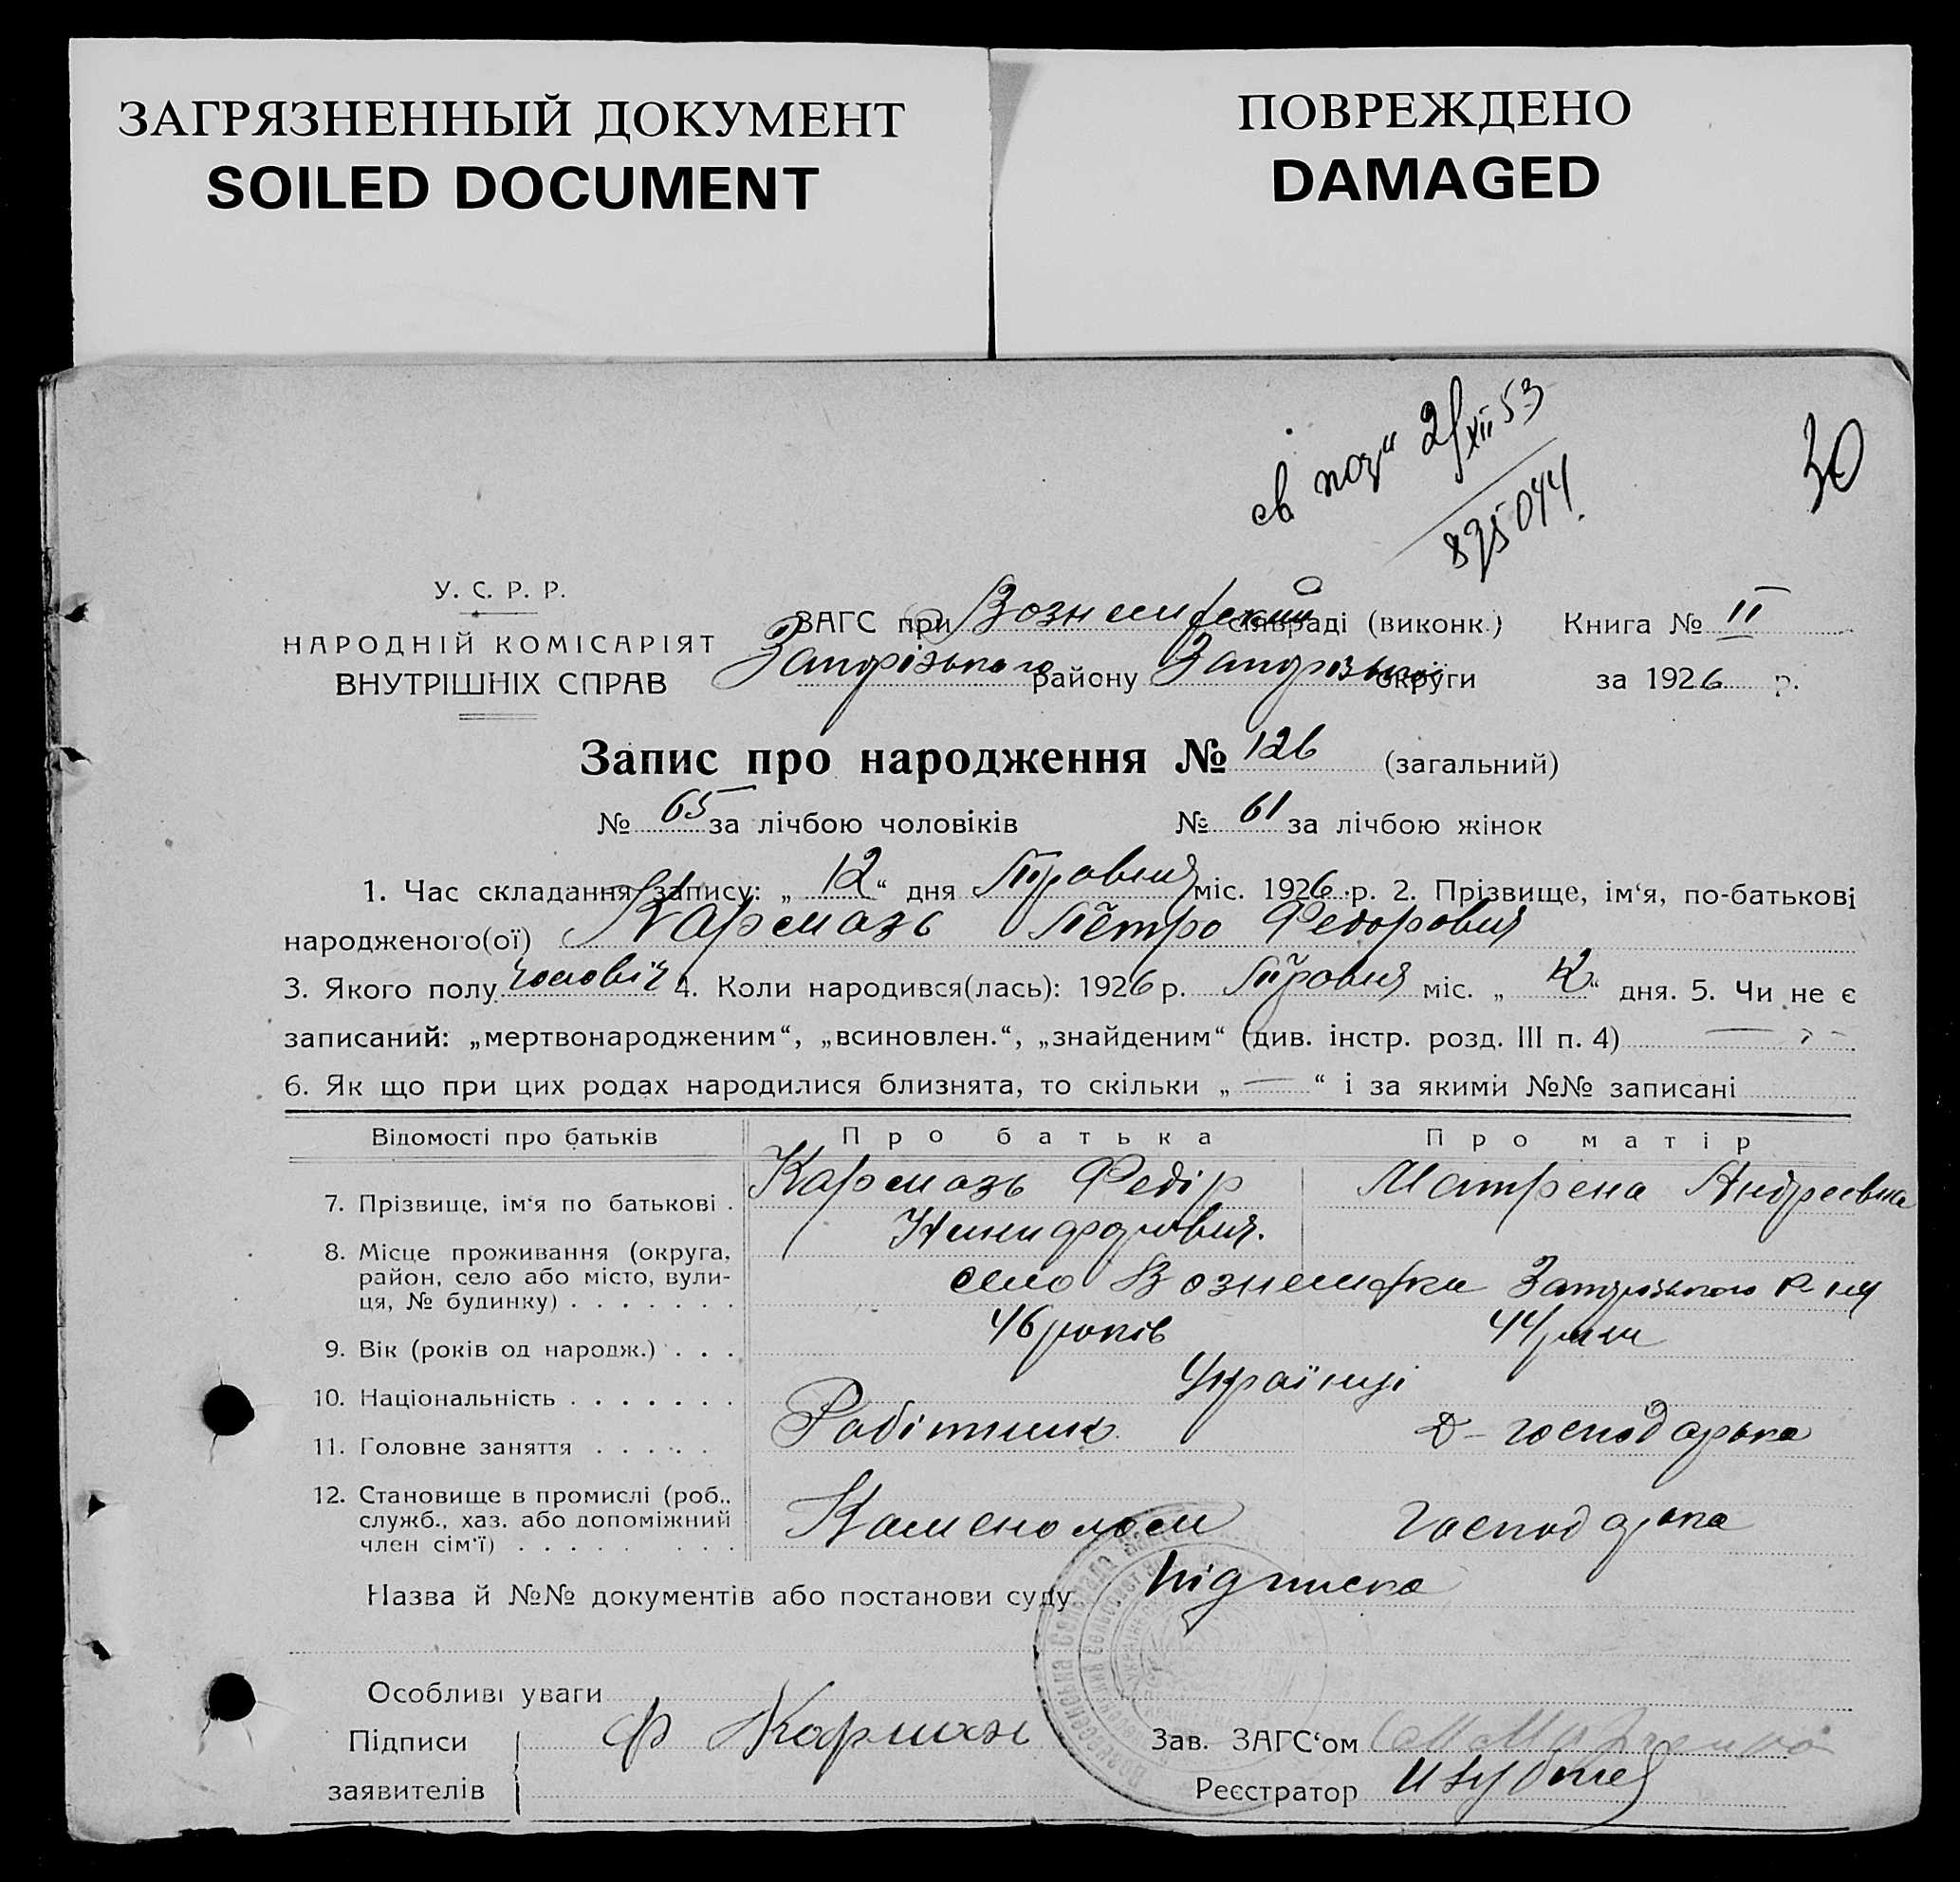 ЗАГРЯЗНЕННЫЙ ДОКУМЕНТ
SOILED DOCUMENT
ПОВРЕЖДЕНО
DAMAGED
св. 2/XII 53
825044.
30
У. С. Р. Р.
НАРОДНІЙ КОМІСАРІЯТ
ВНУТРІШНІХ СПРАВ
ЗАГС при Вознесенський сільраді (виконк.) Книга № II
Запорізького району Запорізької округи за 1926 р.
Запис про народження № 126 (загальний)
№ 65 за лічбою чоловіків № 61 за лічбою жінок
1. Час складання запису: „ 12 “ дня Травня міс. 1926 р. 2. Прізвище, ім‘я, по-батькові
народженого(ої) Кармазь Пётро Федорович
3. Якого полу чоловіч 4. Коли народився(лась): 1926 р. Травня міс. „ 12 “ дня. 5. Чи не є
записаний: „мертвонародженим“, „всиновлен.“, „знайденим“ (див. інстр. розд. III п. 4)
6. Як що при цих родах народилися близнята, то скільки „ — “ і за якими №№ записані
Відомості про батьків Про батька Про матір
7. Прізвище, ім‘я по батькові . Кармазь Федір Никифорович. Матрена Андреевна
8. Місце проживання (округа, район, село або місто, вулиця, № будинку) . . . . . . . село Вознесенка Запорізького
9. Вік (років од народж.) . . . 46 років 44 роки
10. Національність . . . . . . . Українці
11. Головне заняття . . . . . Робітник Д- господарька
12. Становище в промислі (роб., служб., хаз. або допоміжний член сім‘ї) . . . . . . . . Каменолом господарка
Назва й №№ документів або постанови суду підписка
Особливі уваги
Підписи
заявителів
Ф Кармазь
Зав. ЗАГС‘ом
Реєстратор